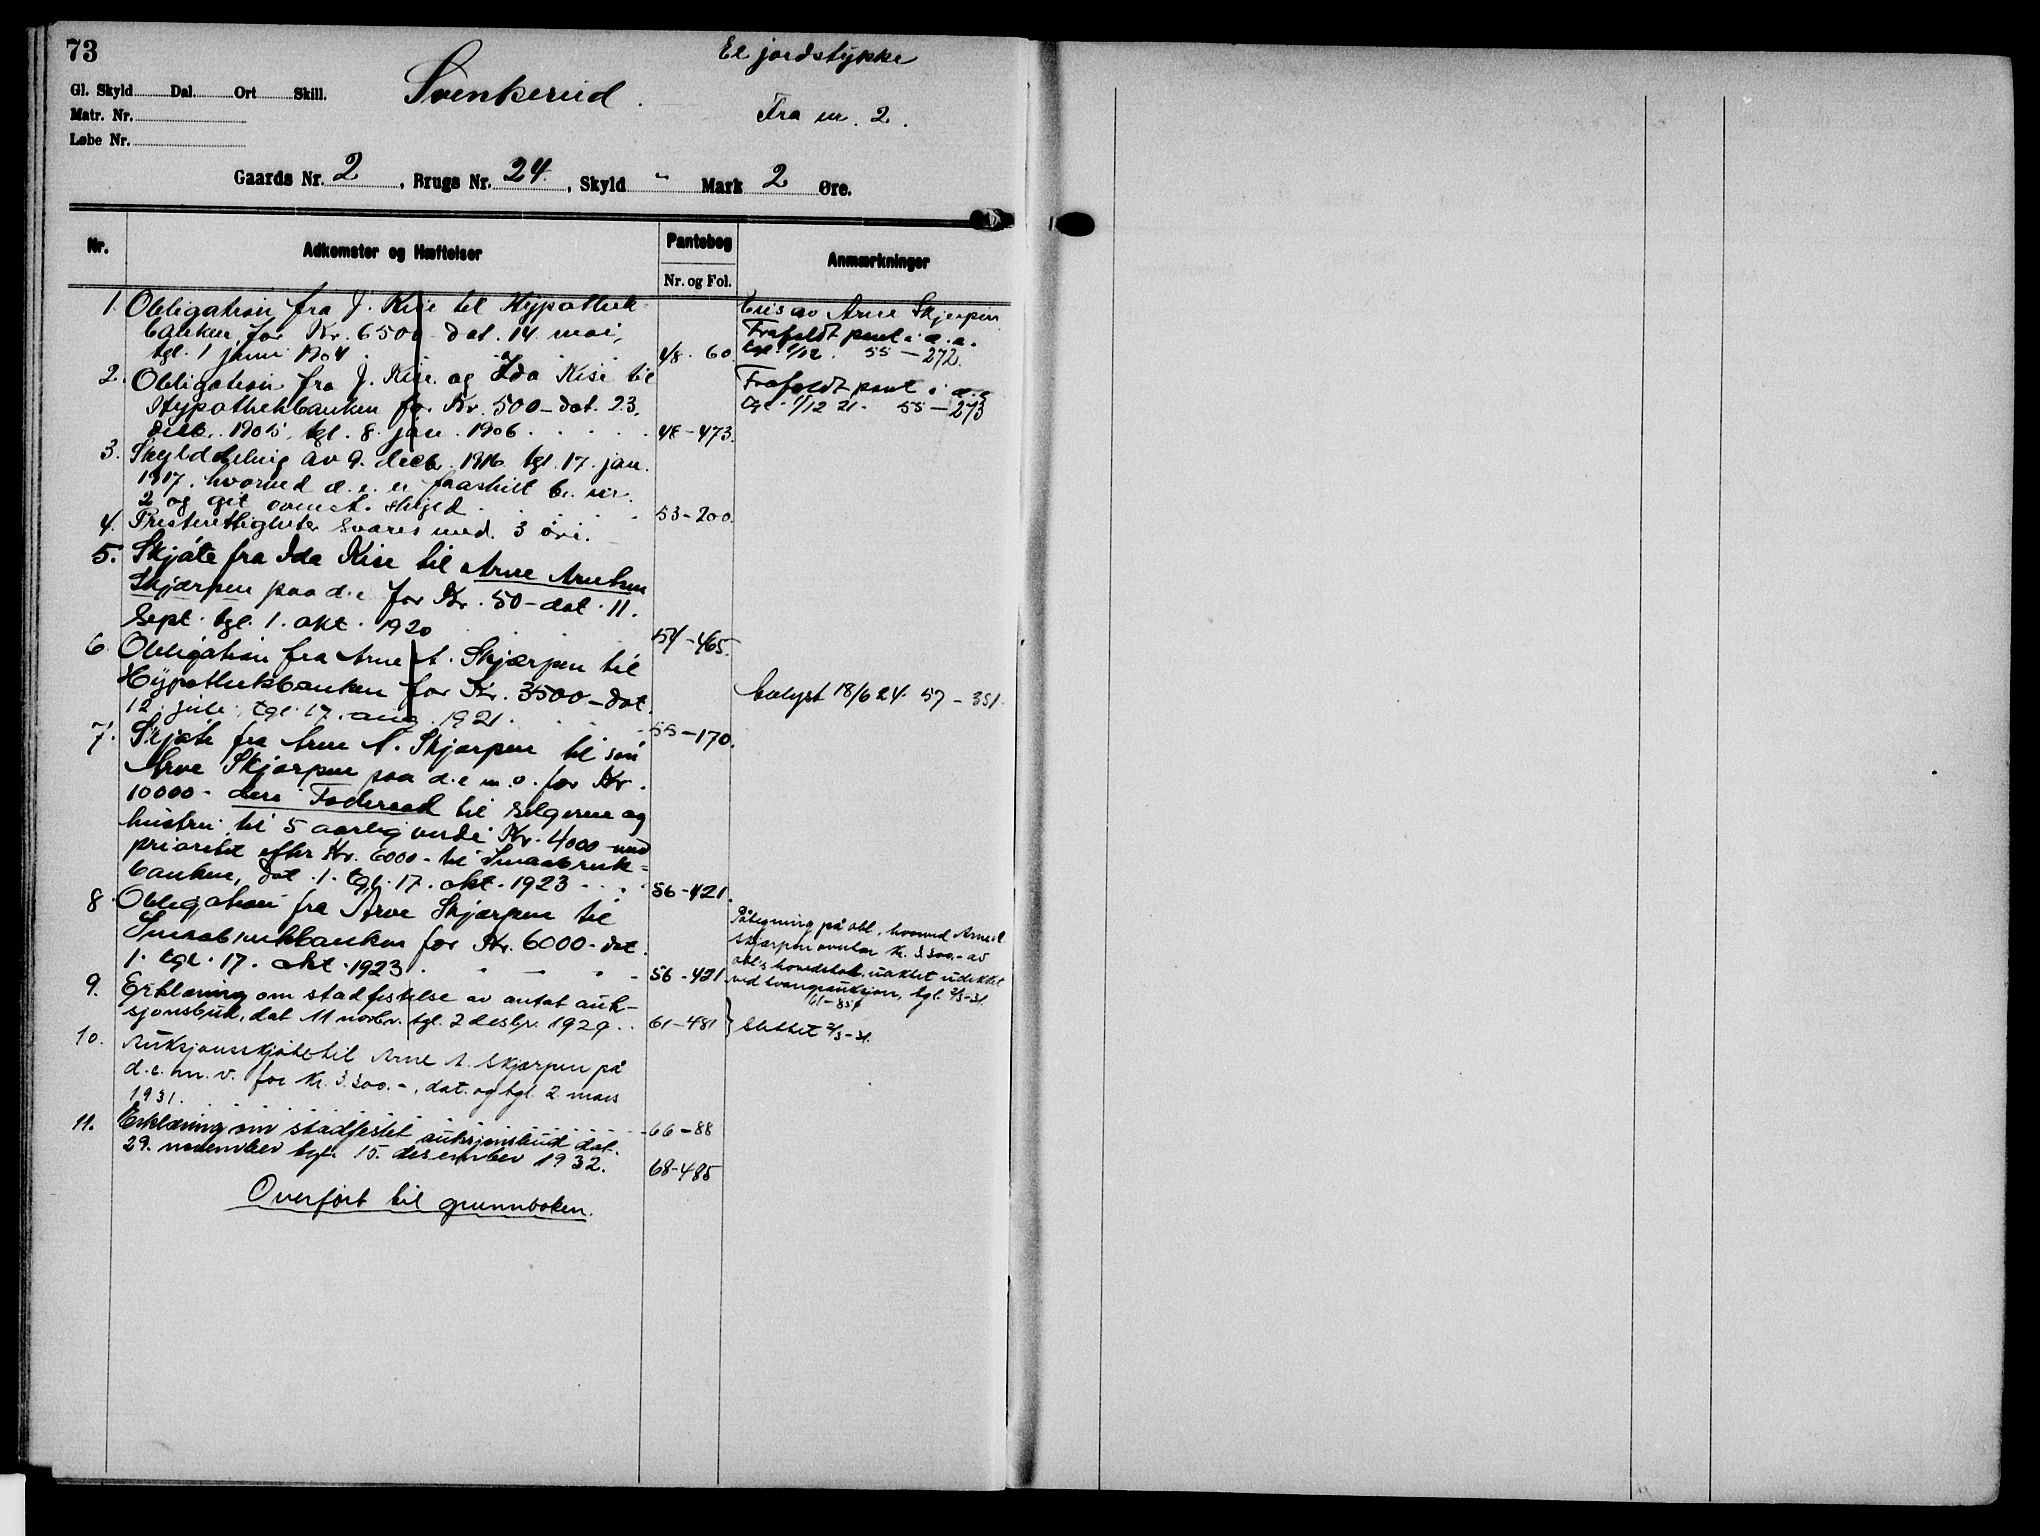 73
Et jordstykke
Gl. Skyld Dal. Ort Skill.
Svenkerud.
Matr. Nr.
Fra nr. 2.
Løbe Nr.
Gaards Nr. 2, Brugs Nr. 24, Skyld " Mark 2 Øre.
Nr. Adkomster og Hæftelser Pantebog Anmærkninger
Nr. og Fol.
1. Obligation fra J. Kise til Hypothek-
banken for Kr. 6500 dat. 14 mai,
tgl. 1 juni 1904. 48-60.
Eies av Arne Skjerpen
Frafaldt pant i d. e.
tgl. 1/12. 55-272.
2. Obligation fra J. Kise og Ida Kise til
Hypothekbanken for Kr. 500- dat. 23.
decb. 1905, tgl. 8. jan. 1906. 48-473.
Frafaldt pant i d. e
tgl. 1/12 21. 55-273
3. Skylddeling av 9. decb. 1916 tgl. 17. jan.
1917. hvorved d. e. er fraskilt br. nr.
2 og git ovenst. skyld. 53-200.
4. Presterettigheter svares med 3 øre.
5. Skjøte fra Ida Kise til Arne Arnesen
Skjærpen paa d.e for Kr. 50- dat. 11.
Sept. tgl. 1. okt. 1920 54-465.
6. Obligation fra Arne A. Skjærpen til
Hypothekbanken for Kr. 3500- dat.
12. juli, tgl. 17. aug. 1921. 55-170.
Avlyst 18/6 24. 57-351.
7. Skjøte fra Arne A. Skjærpen til søn
Arve Skjærpen paa d.e m.v. for Kr.
10000- Føderaad til selgerne og
hustru til 5 aarlig verdi Kr. 4000- med
prioritet efter Kr. 6000- til Smaabruk-
banken, dat. 1. tgl. 17. okt. 1923 56-421.
8. Obligation fra Arve Skjærpen til
Smaabrukbanken for Kr. 6000- dat.
1. tgl. 17. okt. 1923. 56-421
Påtegning på obl., hvorved Arne A.
Skjærpen overtar kr. 3.300.- av
obl.s hovedstol. uaktet udekket
ved tvangsauksjon, tgl. 2/3-31.
61-851
9. Erklæring om stadfestelse av antat auk-
sjonsbud, dat 11 novbr. tgl. 2 desbr. 1929. 61-481 } Slettet 2/3-31.
10. Auksjonsskjøte til Arne A. Skjærpen på
d.e. m. v. for kr. 3.300.-, dat. og tgl. 2. mars
1931. 66-88
11. Erklæring om stadfestet auksjonsbud dat.
29. november tgl. 15. desember 1932. 68-485
Overført til grunnboken.